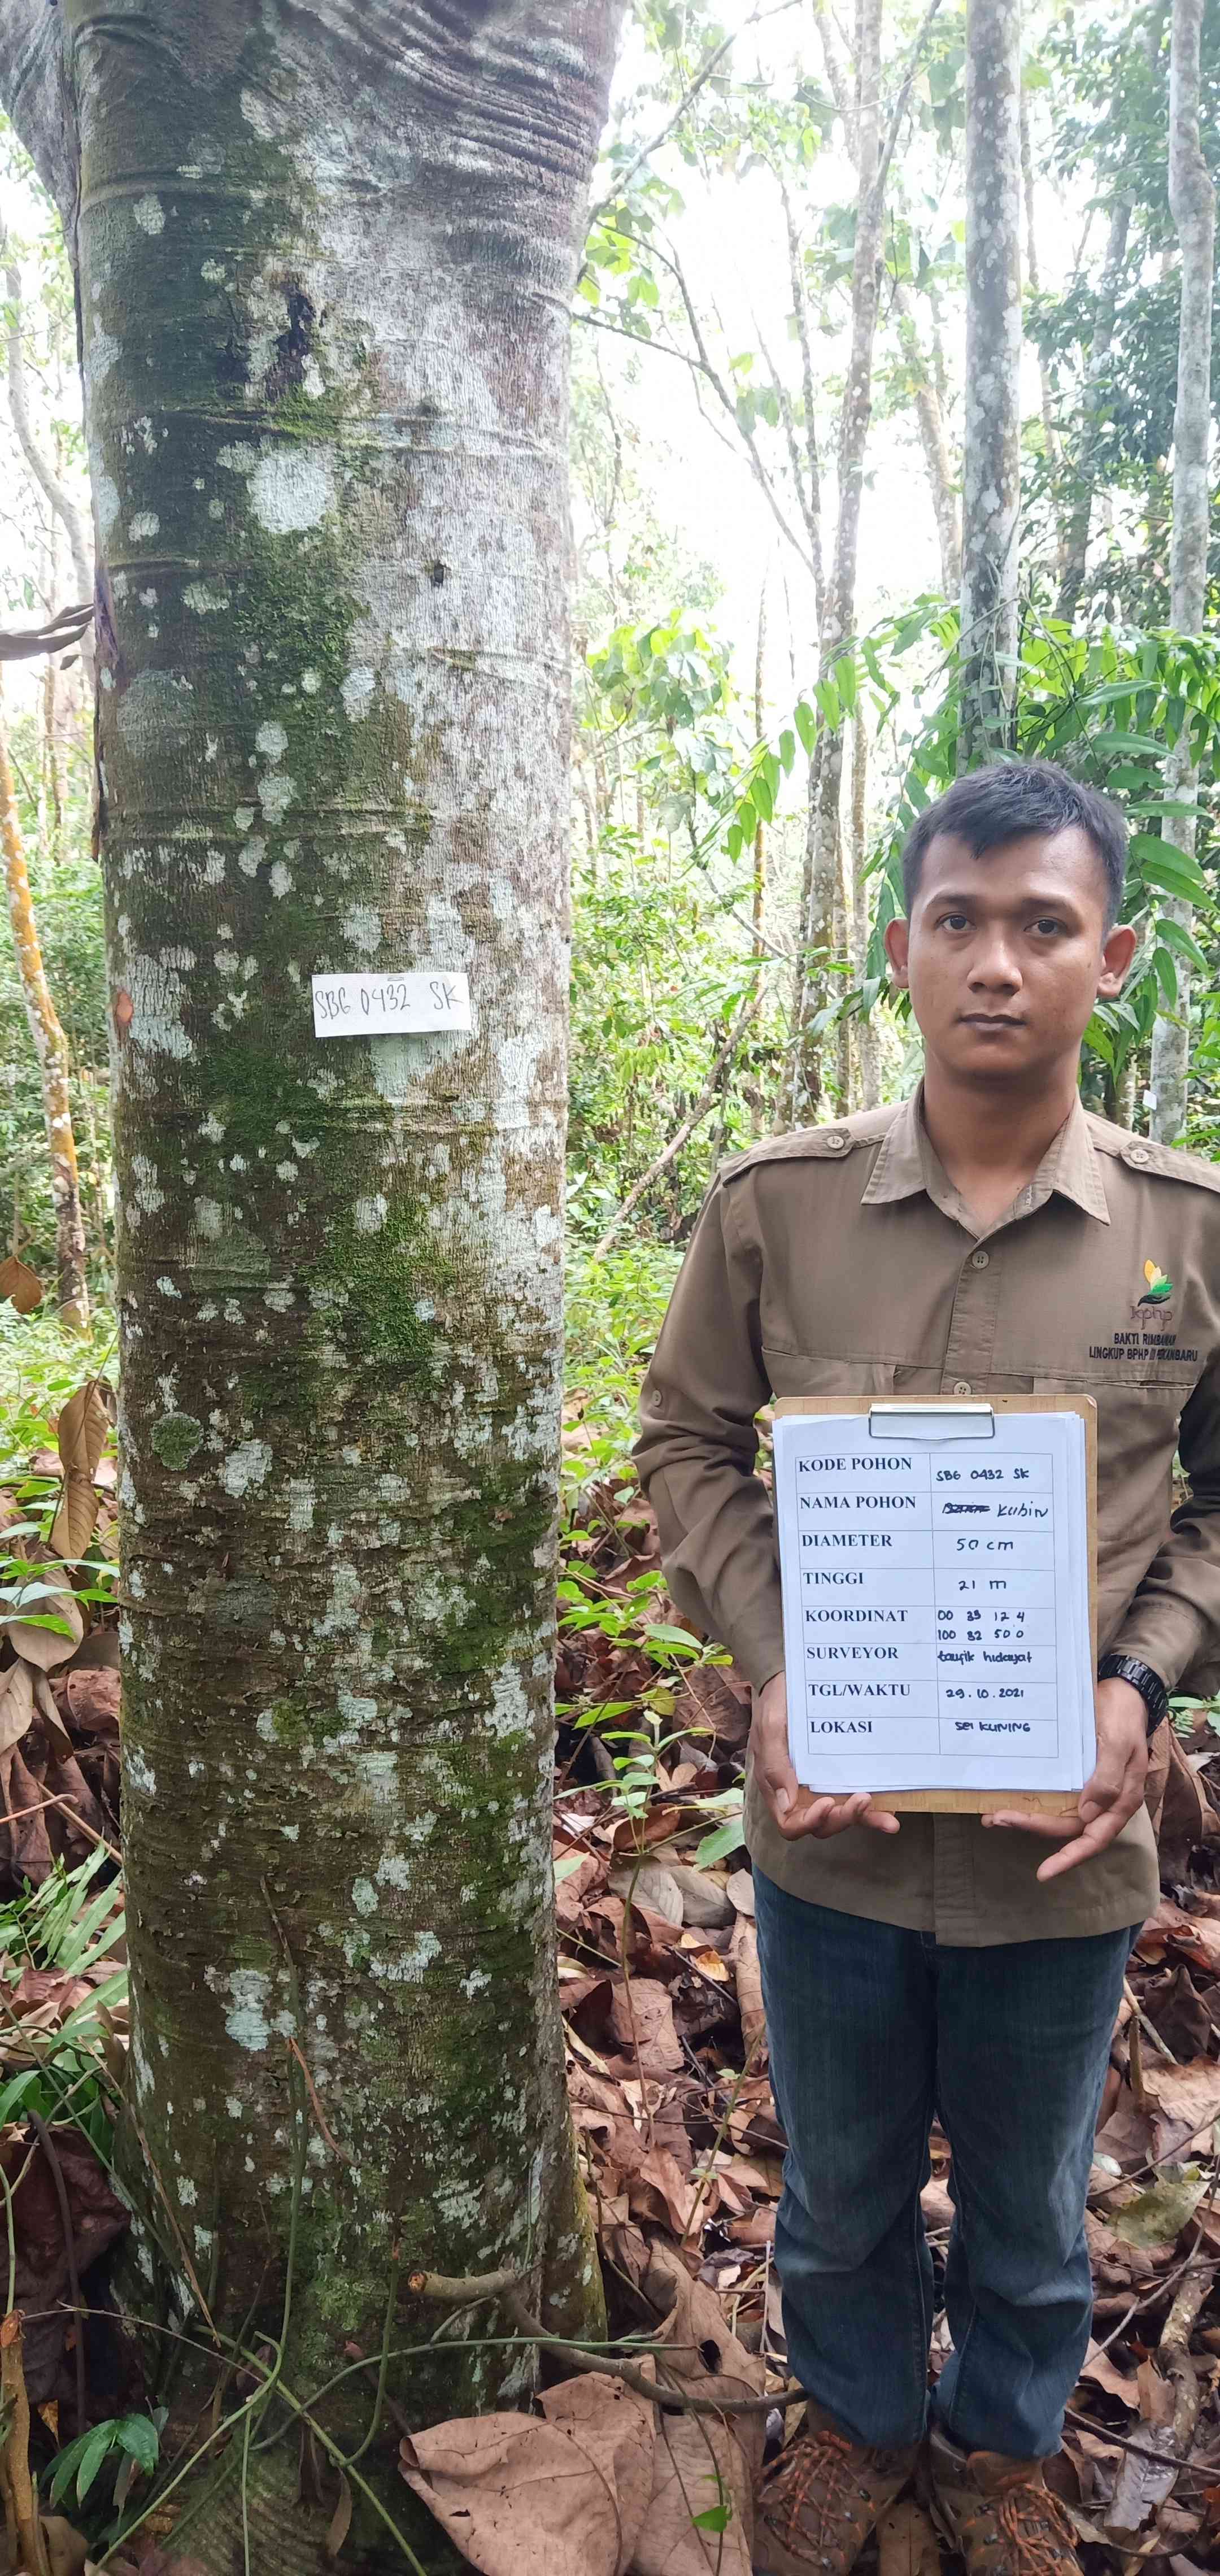 SBG 0432 SK
kphp
BAKTI RIMBAWAN
LINGKUP BPHP III PEKANBARU
KODE POHON SBG 0432 SK
NAMA POHON Kubin
DIAMETER 50 cm
TINGGI 21 m
KOORDINAT 00 35 12 4
100 32 50 0
SURVEYOR taufik hidayat
TGL/WAKTU 29.10.2021
LOKASI Sei KUNING